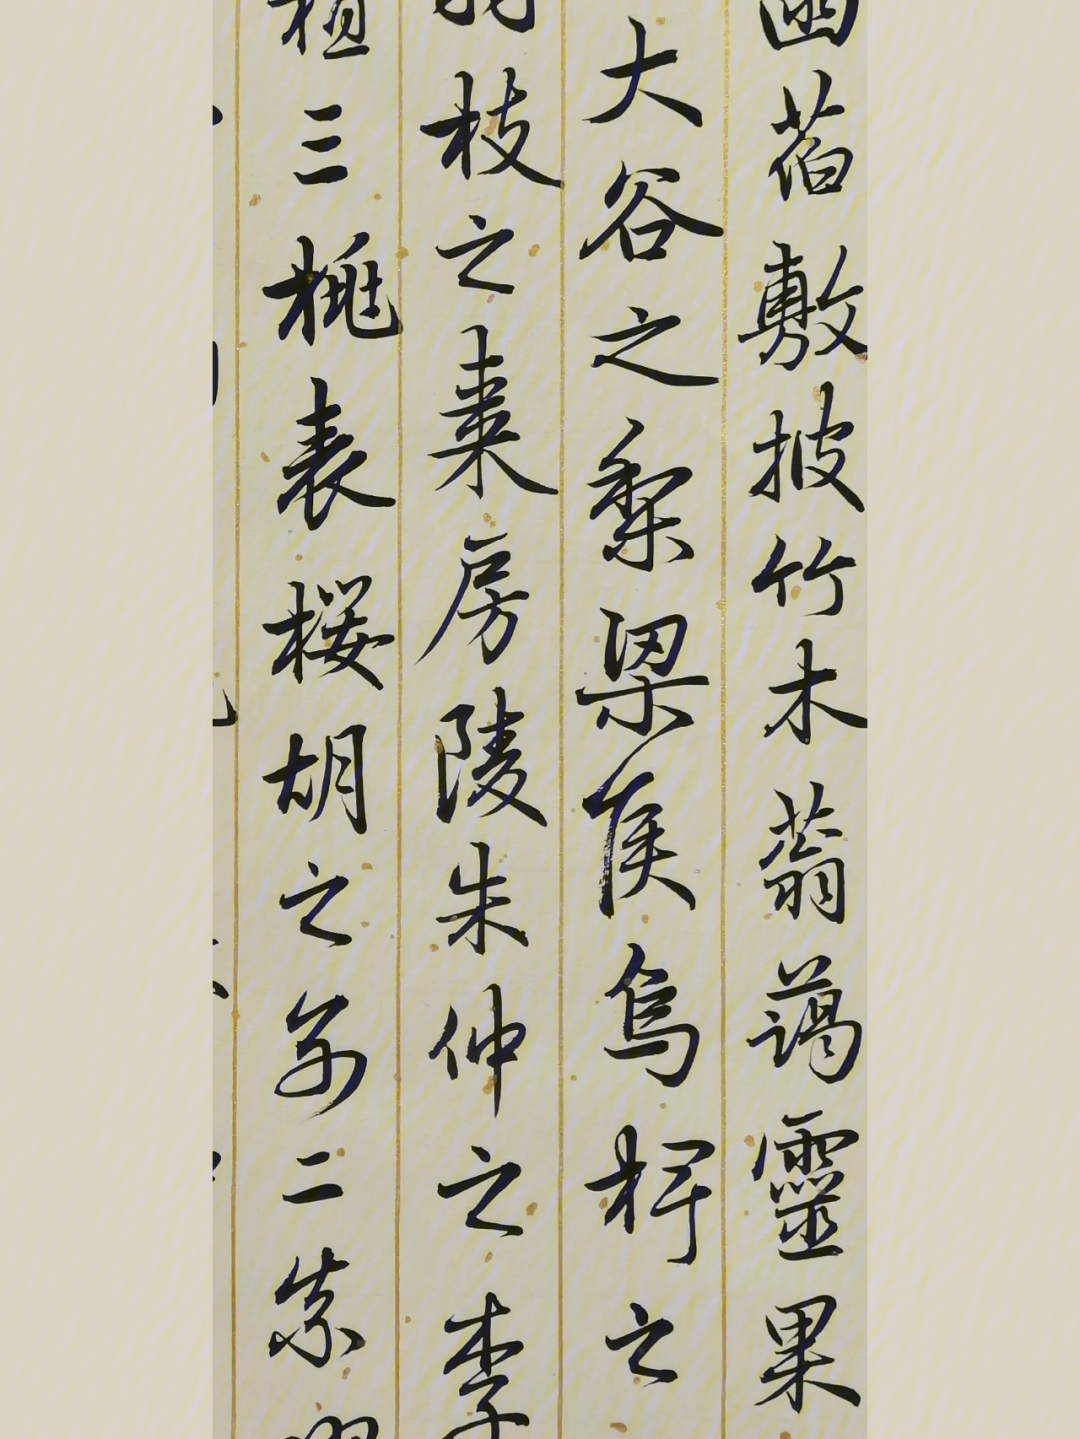 萏敷披竹木蓊藹靈果
大谷之梨梁侯烏椑之
枝之棗房陵朱仲之李
植三桃表桜胡之别二柰